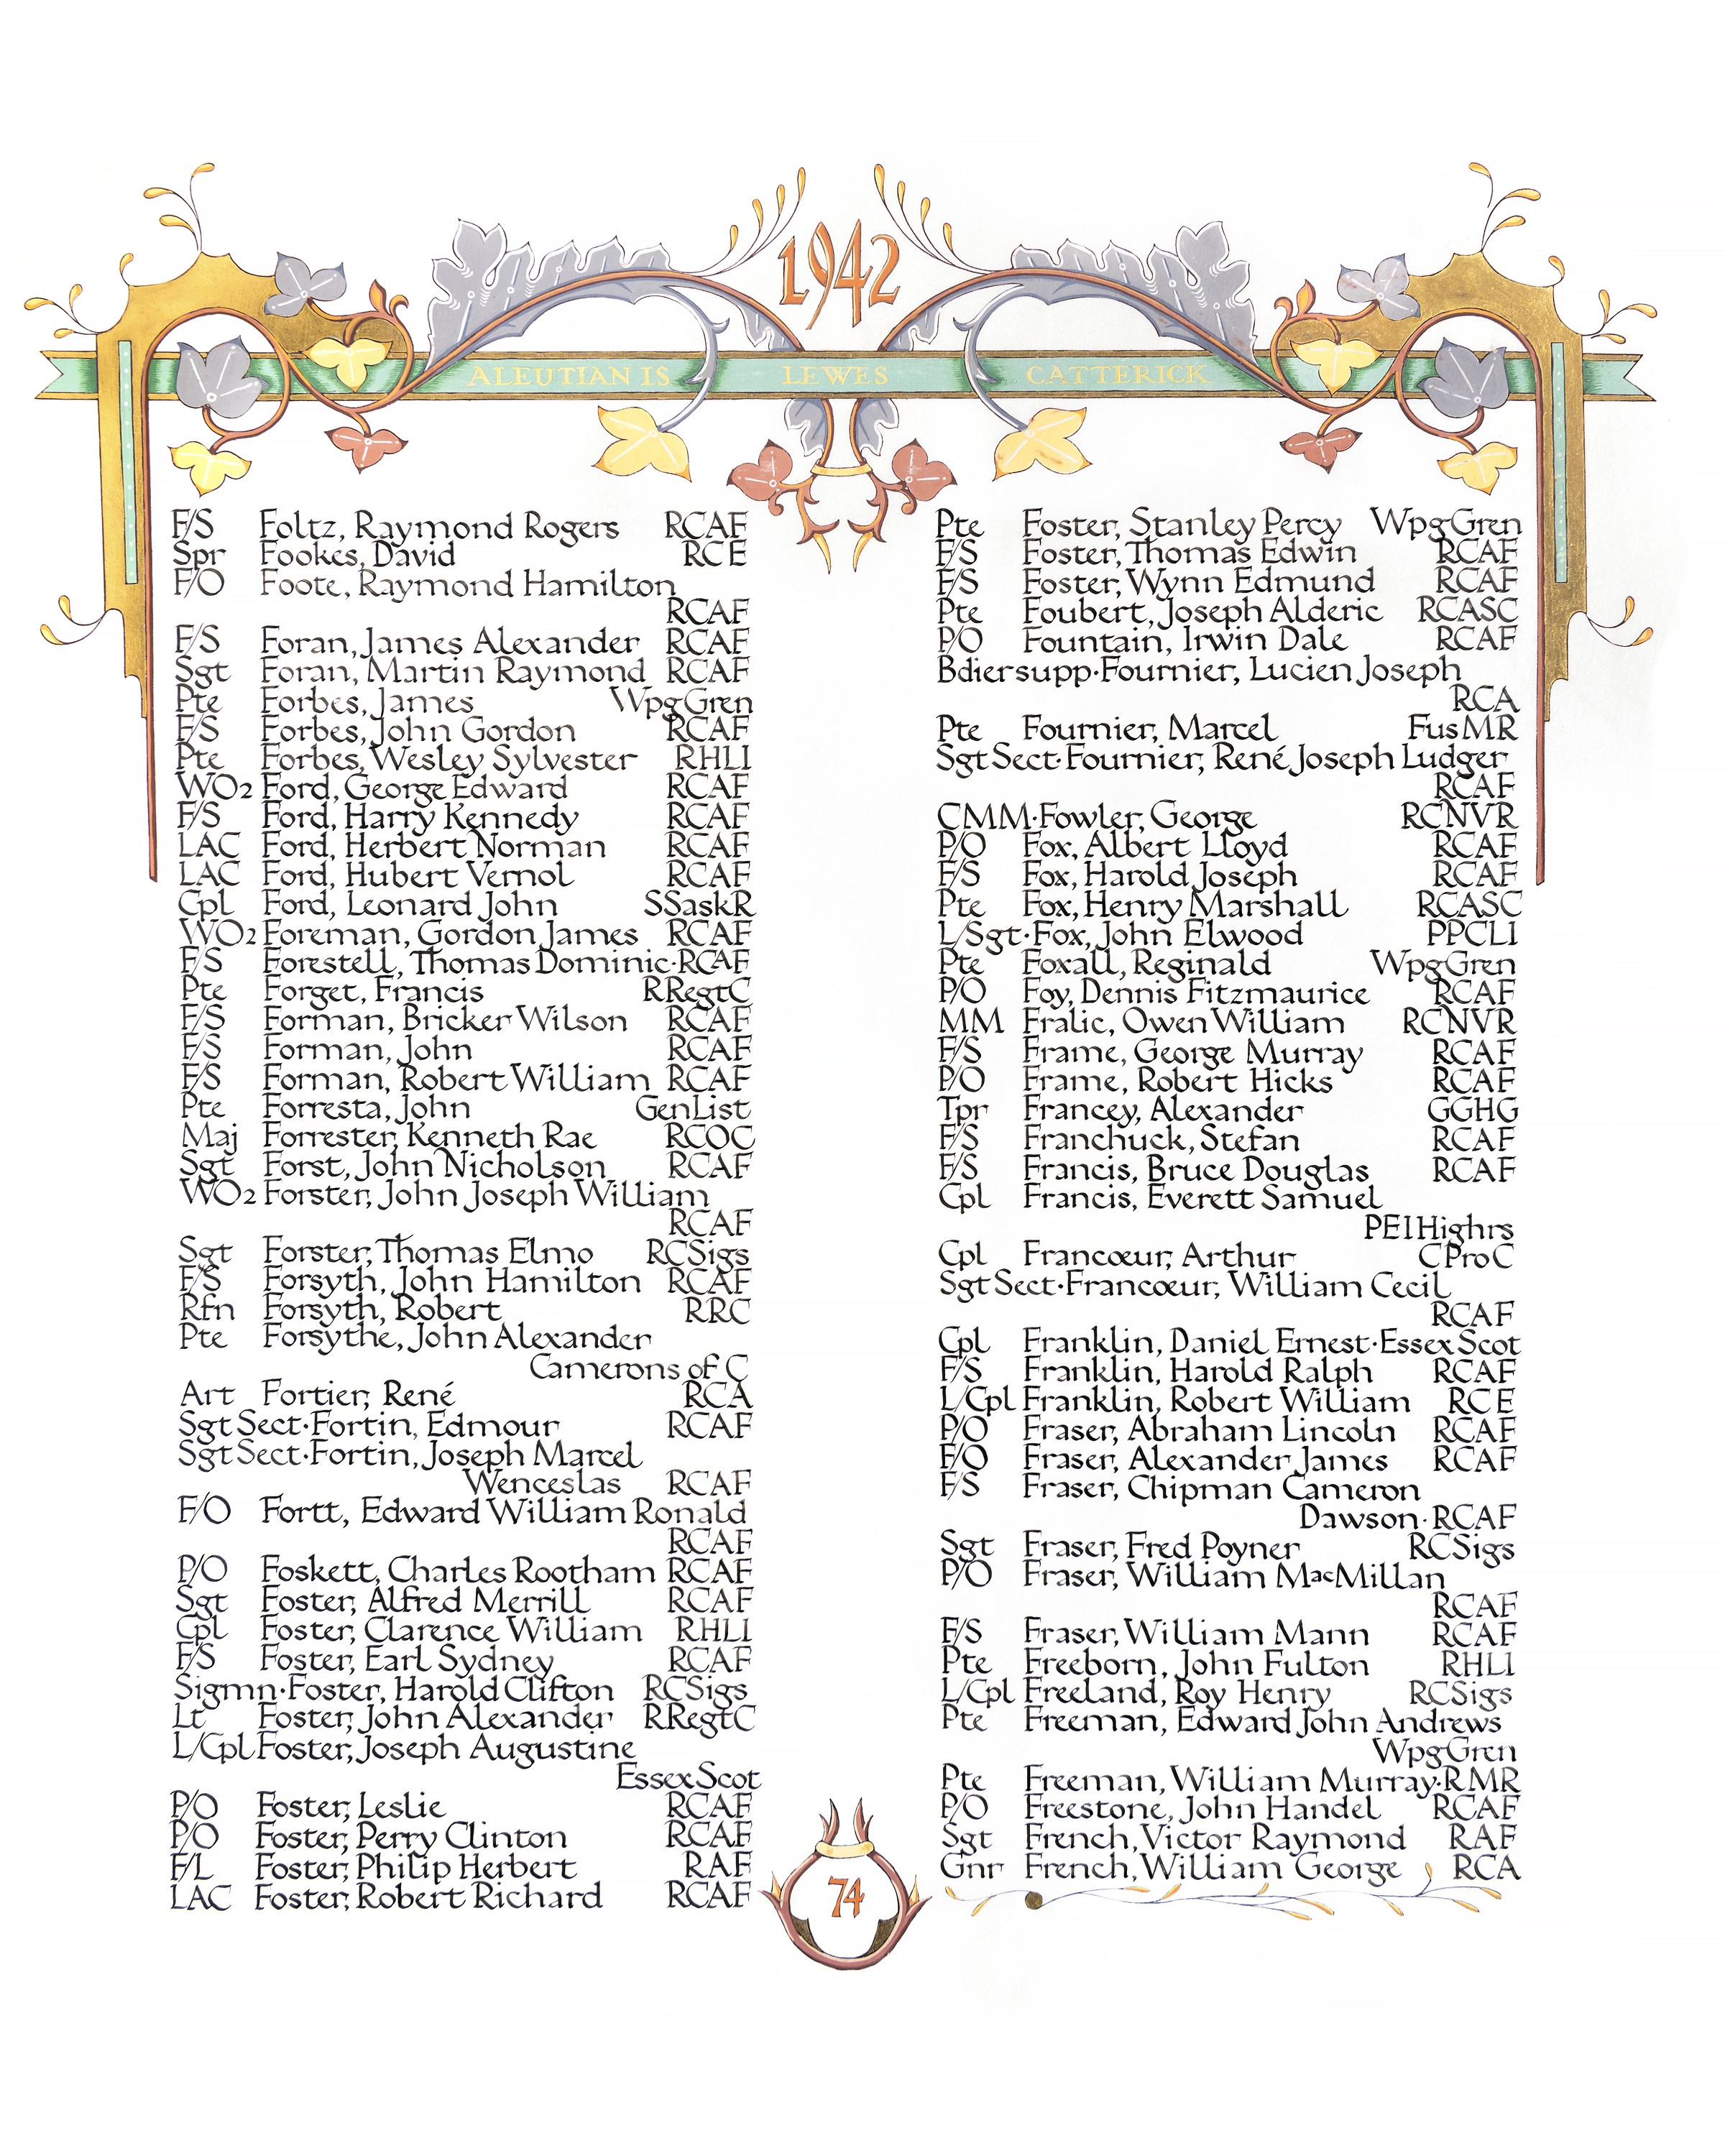 1942
ALEUTIAN IS LEWES CATTERICK
F/S Foltz, Raymond Rogers RCAF
Spr Fookes, David RCE
F/O Foote, Raymond Hamilton
RCAF
F/S Foran, James Alexander RCAF
Sgt Foran, Martin Raymond RCAF
Pte Forbes, James WpgGren
F/S Forbes, John Gordon RCAF
Pte Forbes, Wesley Sylvester RHLI
WO2 Ford, George Edward RCAF
F/S Ford, Harry Kennedy RCAF
LAC Ford, Herbert Norman RCAF
LAC Ford, Hubert Vernol RCAF
Cpl Ford, Leonard John SSaskR
WO2 Foreman, Gordon James RCAF
F/S Forestell, Thomas Dominic·RCAF
Pte Forget, Francis RRegtC
F/S Forman, Bricker Wilson RCAF
F/S Forman, John RCAF
F/S Forman, Robert William RCAF
Pte Forresta, John GenList
Maj Forrester, Kenneth Rae RCOC
Sgt Forst, John Nicholson RCAF
WO2 Forster, John Joseph William
RCAF
Sgt Forster, Thomas Elmo RCSigs
F/S Forsyth, John Hamilton RCAF
Rfn Forsyth, Robert RRC
Pte Forsythe, John Alexander
Camerons of C
Art Fortier, René RCA
Sgt Sect·Fortin, Edmour RCAF
Sgt Sect·Fortin, Joseph Marcel
Wenceslas RCAF
F/O Fortt, Edward William Ronald
RCAF
P/O Foskett, Charles Rootham RCAF
Sgt Foster, Alfred Merrill RCAF
Cpl Foster, Clarence William RHLI
F/S Foster, Earl Sydney RCAF
Sigmn·Foster, Harold Clifton RCSigs
Lt Foster, John Alexander RRegtC
L/Cpl Foster, Joseph Augustine
EssexScot
P/O Foster, Leslie RCAF
P/O Foster, Perry Clinton RCAF
F/L Foster, Philip Herbert RAF
LAC Foster, Robert Richard RCAF
Pte Foster, Stanley Percy WpgGren
F/S Foster, Thomas Edwin RCAF
F/S Foster, Wynn Edmund RCAF
Pte Foubert, Joseph Alderic RCASC
P/O Fountain, Irwin Dale RCAF
Bdiersupp·Fournier, Lucien Joseph
RCA
Pte Fournier, Marcel FusMR
Sgt Sect·Fournier, René Joseph Ludger
RCAF
CMM·Fowler, George RCNVR
P/O Fox, Albert Lloyd RCAF
F/S Fox, Harold Joseph RCAF
Pte Fox, Henry Marshall RCASC
L/Sgt·Fox, John Elwood PPCLI
Pte Foxall, Reginald WpgGren
P/O Foy, Dennis Fitzmaurice RCAF
MM Fralic, Owen William RCNVR
F/S Frame, George Murray RCAF
P/O Frame, Robert Hicks RCAF
Tpr Francey, Alexander GGHG
F/S Franchuck, Stefan RCAF
F/S Francis, Bruce Douglas RCAF
Cpl Francis, Everett Samuel
PEIHighrs
Cpl Francœur, Arthur CProC
Sgt Sect·Francœur, William Cecil
RCAF
Cpl Franklin, Daniel Ernest·EssexScot
F/S Franklin, Harold Ralph RCAF
L/Cpl Franklin, Robert William RCE
P/O Fraser, Abraham Lincoln RCAF
F/O Fraser, Alexander James RCAF
F/S Fraser, Chipman Cameron
Dawson·RCAF
Sgt Fraser, Fred Poyner RCSigs
P/O Fraser, William MacMillan
RCAF
F/S Fraser, William Mann RCAF
Pte Freeborn, John Fulton RHLI
L/Cpl Freeland, Roy Henry RCSigs
Pte Freeman, Edward John Andrews
WpgGren
Pte Freeman, William Murray·RMR
P/O Freestone, John Handel RCAF
Sgt French, Victor Raymond RAF
Gnr French, William George RCA
74